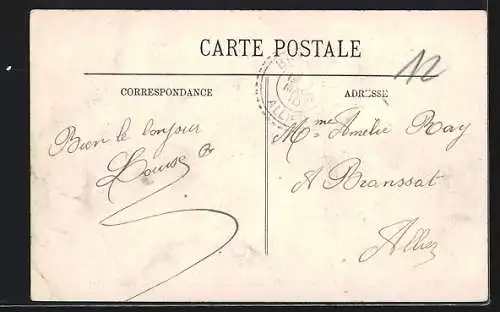 CARTE POSTALE
12
CORRESPONDANCE
ADRESSE
Bien le bonjour
Louise
Mme Amélie Ray
A Branssat
Allier